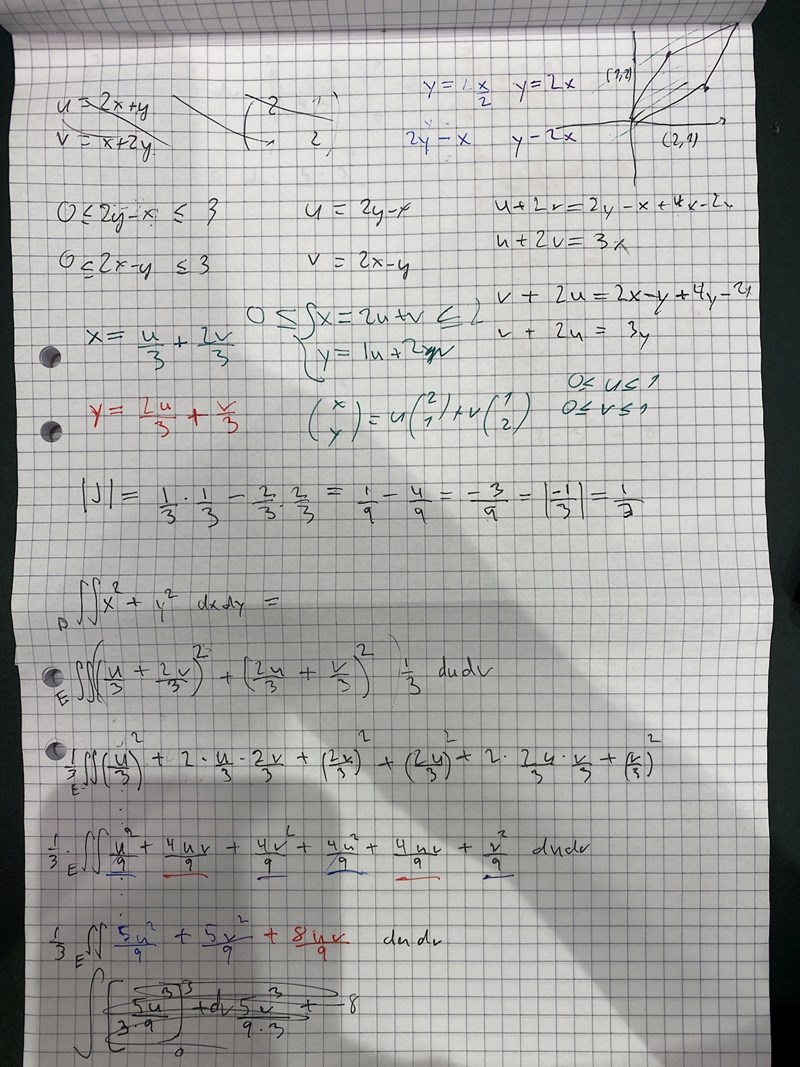 u = 2x+y
v = x+2y
( 2 1 )
2
y = x/2 y = 2x
2y - x y - 2x
(1,2)
(2,1)
0 ≤ 2y-x ≤ 3 u = 2y-x u+2v = 2y-x+4x-2y
0 ≤ 2x-y ≤ 3 v = 2x-y u+2v = 3x
v + 2u = 2x-y+4y-2x
v + 2u = 3y
x = u/3 + 2v/3
0 ≤ { x = 2u+v ≤ 2
y = 1u + 2v
y = 2u/3 + v/3
(x y) = u(2 1) + v(1 2)
0 ≤ u ≤ 1
0 ≤ v ≤ 1
|J| = 1/3 · 1/3 - 2/3 · 2/3 = 1/9 - 4/9 = -3/9 = |-1/3| = 1/3
D ∬ x² + y² dxdy =
E ∬ ((u/3 + 2v/3)² + (2u/3 + v/3)²) 1/3 dudv
1/3 E ∬ (u/3)² + 2 · u/3 · 2v/3 + (2v/3)² + (2u/3)² + 2 · 2u/3 · v/3 + (v/3)²
1/3 · E ∬ u²/9 + 4uv/9 + 4v²/9 + 4u²/9 + 4uv/9 + v²/9 dudv
1/3 E ∬ 5u²/9 + 5v²/9 + 8uv/9 dudv
∫ [5u³/3·9]³₀ + 5v³/9·3 + 8